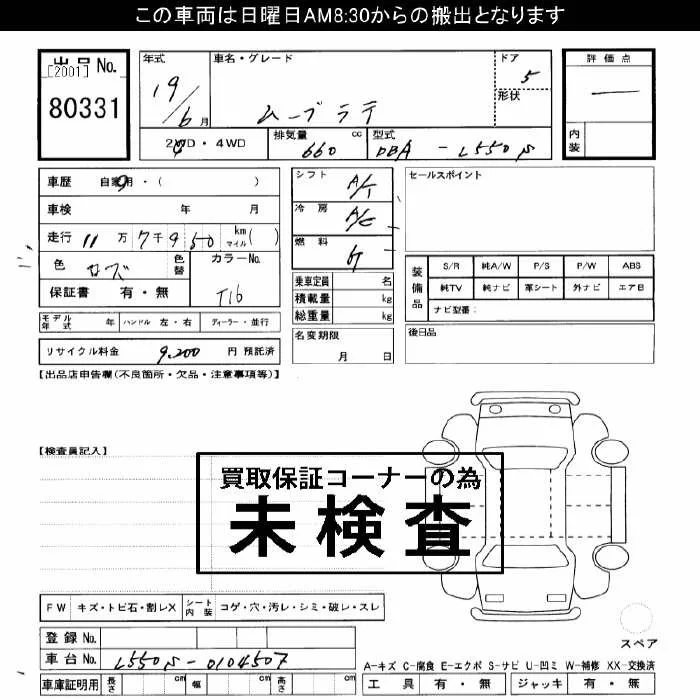 この車両は日曜日AM8:30からの搬出となります
出品 No.
[2001]
80331
年式
19/6月
車名・グレード
ムーブラテ
ドア
5
形状
評価点
―
内装
2WD・4WD
排気量 cc
660
型式
DBA-L550S
車歴 自家用・( )
車検 年 月
走行 11万7千950 km マイル( )
色
色替
カラーNo.
T16
保証書 有・無
モデル年式 年 ハンドル 左・右 ディーラー・並行
リサイクル料金 9,200 円 預託済
シフト A/T
冷房 A/C
燃料 G
乗車定員 名
積載量 kg
総重量 kg
名変期限
月 日
セールスポイント
装備品
S/R 純A/W P/S P/W ABS
純TV 純ナビ 革シート 外ナビ エアB
ナビ型番:
後日品
【出品店申告欄(不良箇所・欠品・注意事項等)】
【検査員記入】
買取保証コーナーの為
未検査
FW キズ・トビ石・割レX シート内装 コゲ・穴・汚レ・シミ・破レ・スレ
登録 No.
車台 No. L550S-0104507
車庫証明用 長さ cm 幅 cm 高さ cm
スペア
A-キズ C-腐食 E-エクボ S-サビ U-凹ミ W-補修 XX-交換済
工具 有・無 ジャッキ 有・無